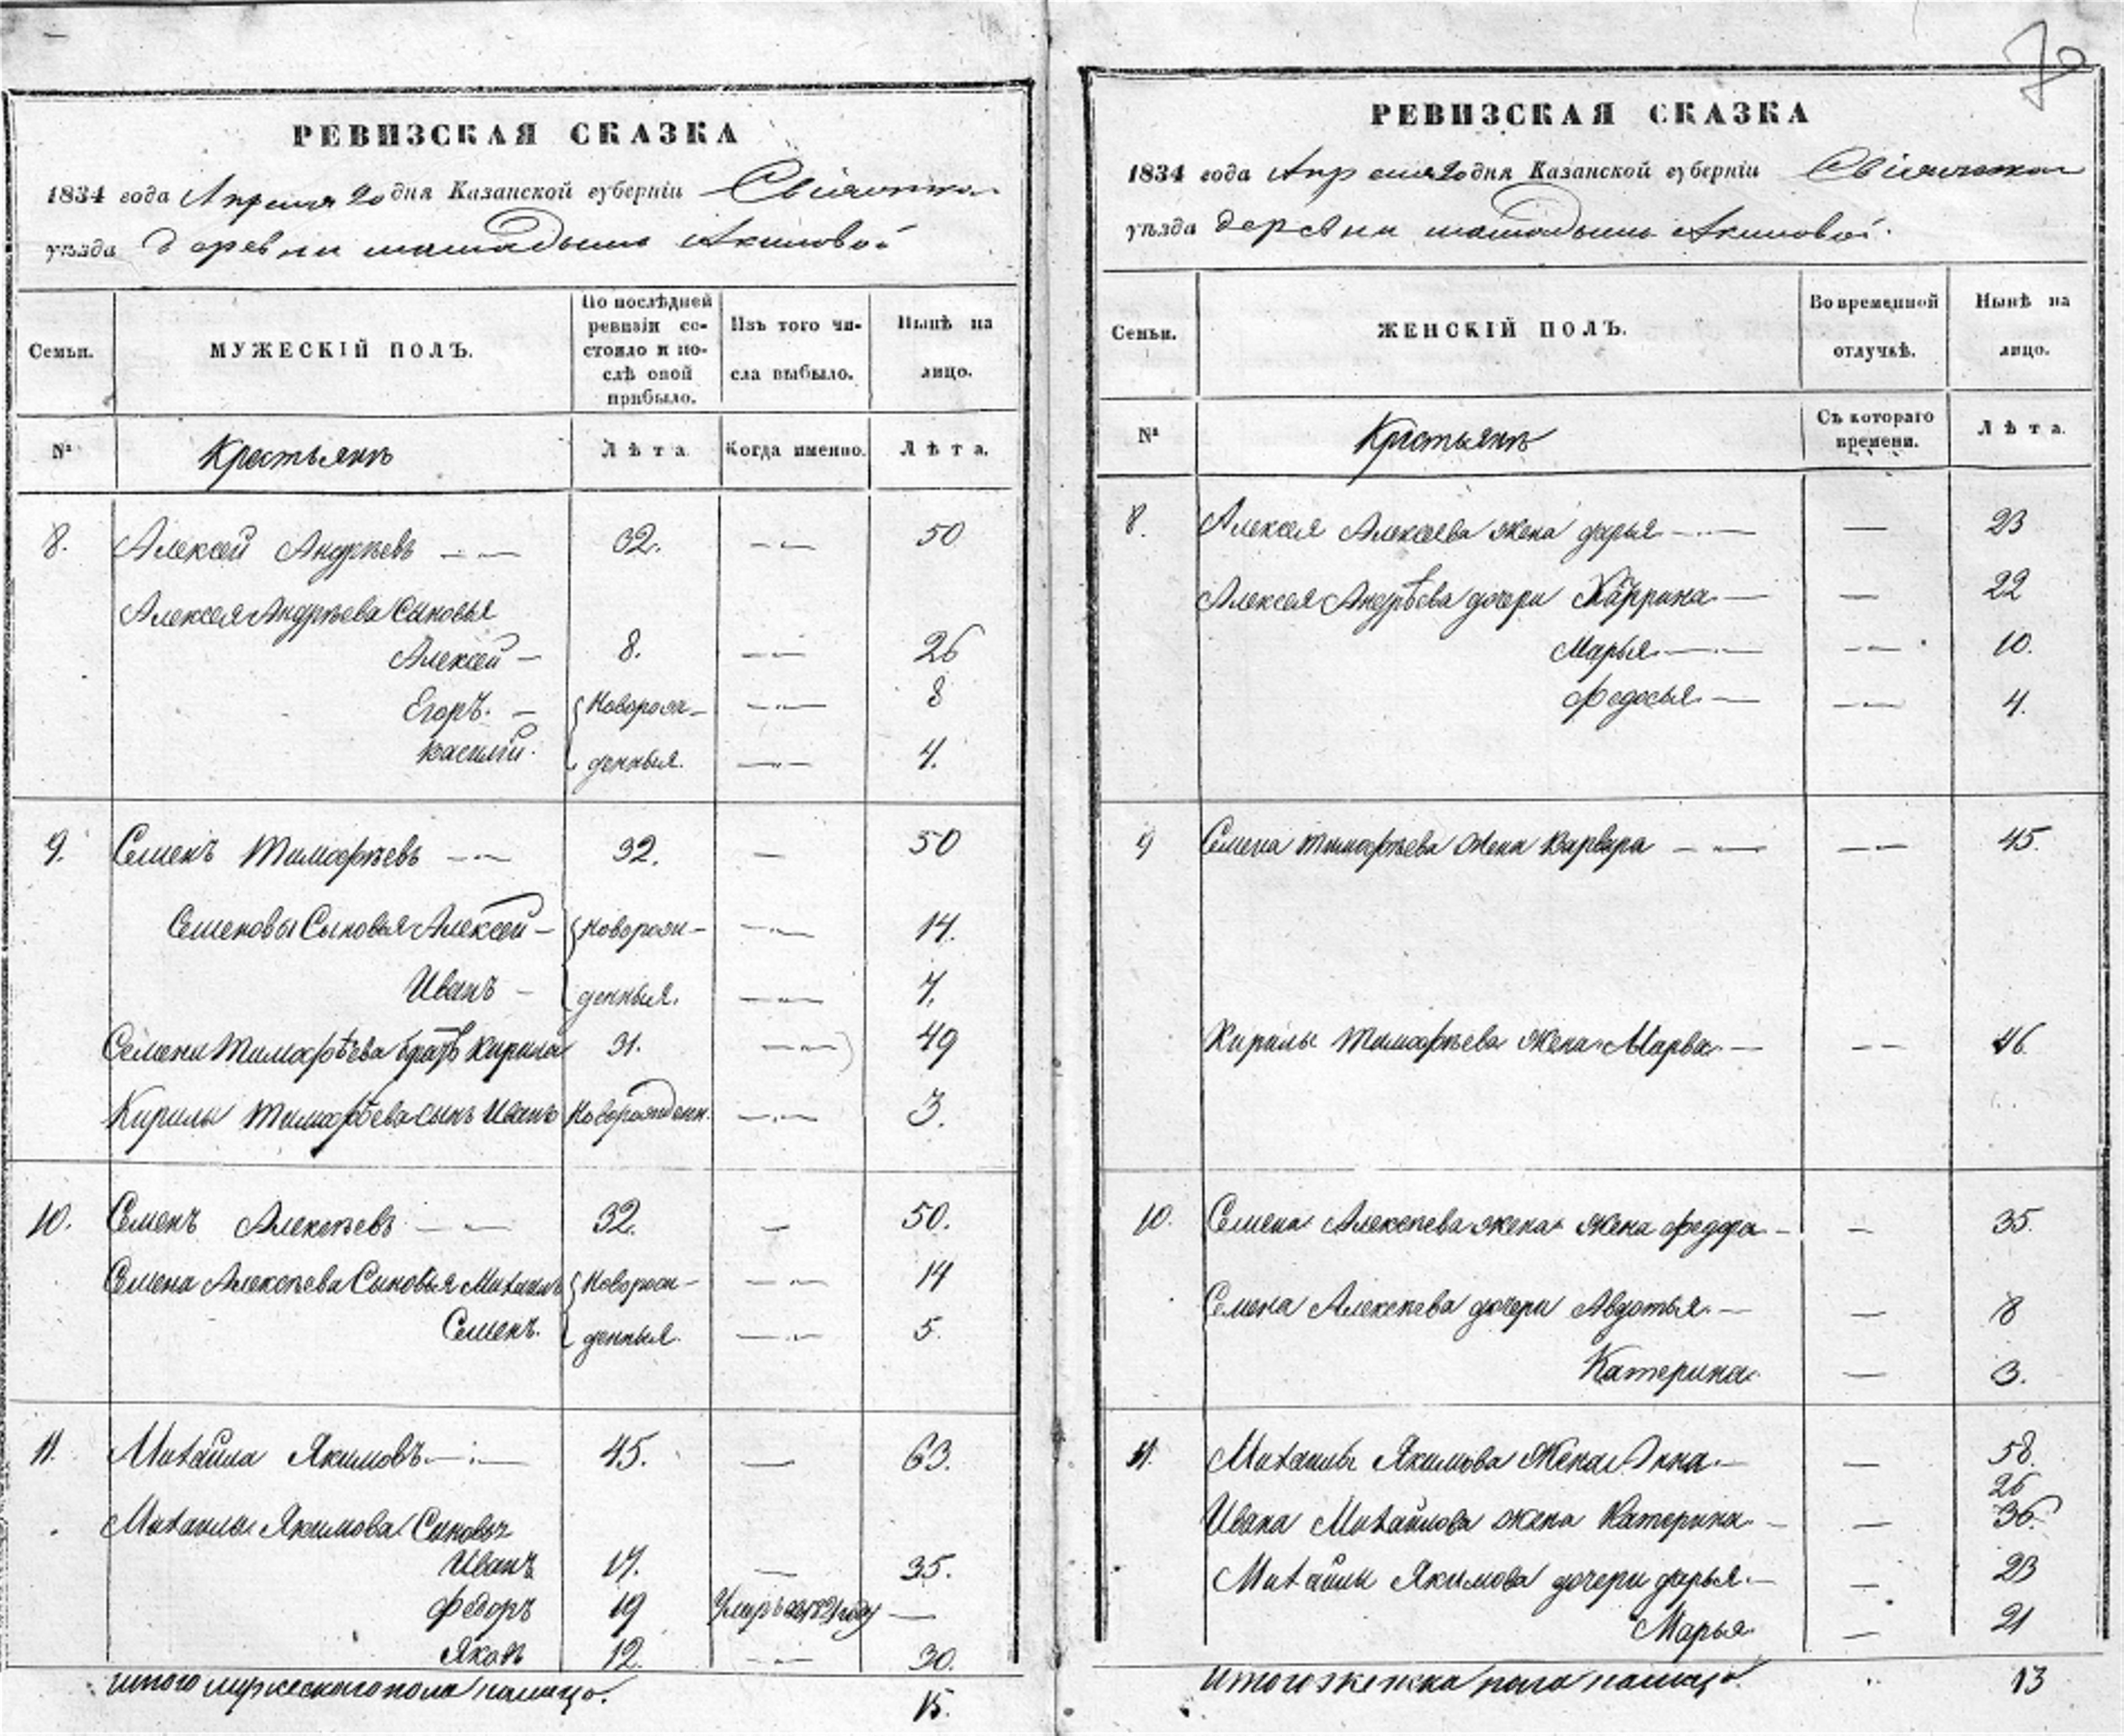 70
РЕВИЗСКАЯ СКАЗКА
1834 года Апреля 20 дня Казанской губерніи Свіяжскаго
уѣзда деревни Акиловой
Семьи.
МУЖЕСКІЙ ПОЛЪ.
По послѣдней ревизіи состояло и послѣ оной прибыло.
Изъ того числа выбыло.
Нынѣ на лицо.
№
Крестьянъ
Лѣта
Когда именно.
Лѣта.
8. Алексей Андрѣевъ 32. 50
Алексея Андрѣева Сыновья
Алексей 8. 26
Егоръ. Новорож- 8
Василий. денныя. 4.
9. Семенъ Тимофѣевъ 32. 50
Семеновы Сыновья Алексей Новорож- 14.
Иванъ денныя. 7.
Семена Тимофѣева братъ Кирила 31. 49
Кирилы Тимофѣева сынъ Иванъ Новорожденн. 3.
10. Семенъ Алексѣевъ 32. 50.
Семена Алексѣева Сыновья Михаилъ Новорож- 14
Семенъ. денныя. 5.
11. Михайла Якимовъ 45. 63.
Михаилы Якимова Сыновья
Иванъ 17. 35.
Федоръ 19 Умръ 821 году
Яковъ 12. 30.
Итого мужескаго пола налицо. 15.
РЕВИЗСКАЯ СКАЗКА
1834 года Апреля 20 дня Казанской губерніи Свіяжскаго
уѣзда деревни Акиловой.
Семьи.
ЖЕНСКІЙ ПОЛЪ.
Во временной отлучкѣ.
Нынѣ на лицо.
№
Крестьянъ
Съ котораго времени.
Лѣта.
8. Алексея Алексеева жена Дарья 23
Алексея Андрѣева дочери 22
Марья 10.
Федосья 4.
9 Семена Тимофѣева жена Варвара 45.
Кирилы Тимофѣева жена Марва 46.
10. Семена Алексѣева жена жена Федора 35.
Семена Алексѣева дочери Авдотья 8
Катерина 3.
11. Михаилы Якимова жена Анна 58.
26
Ивана Михайлова жена Катерина 36.
Михайлы Якимова дочери Дарья 23
Марья 21
Итого женска пола налицо. 13